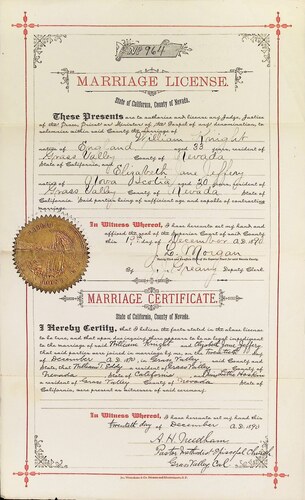 No 964
MARRIAGE LICENSE
State of California, County of Nevada.
These Presents are to authorize and license any Judge, Justice
of the Peace, Priest or Minister of the Gospel of any denomination, to
solemnize within said County the marriage of
William Knight
native of England aged 33 years, resident of
Grass Valley County of Nevada
State of California, and
Elizabeth Jane Jeffery
native of Nova Scotia aged 20 years, resident of
Grass Valley County of Nevada
State of California. Said parties being of sufficient age and capable of contracting
marriage.
In Witness Whereof, I have hereunto set my hand and
affixed the seal of the Superior Court of said County
this day of December A.D. 1890
J. L. Morgan
By Deputy Clerk.
MARRIAGE CERTIFICATE.
State of California, County of Nevada.
I Hereby Certify, that I believe the facts stated in the above license
to be true, and that upon due inquiry there appears to be no legal impediment
to the marriage of said William Knight and Elizabeth Jane Jeffery
that said parties were joined in marriage by me, on the Twentieth day
of December A.D. 1890, in Grass Valley County and
State; that William Eddy a resident of Grass Valley County of
Nevada State of California and
a resident of Grass Valley County of Nevada State of
California, are present as witnesses of said ceremony.
In Witness Whereof, I have hereunto set my hand this
twentieth day of December A.D. 1890
A. H. Needham
Pastor Methodist Episcopal Church
Grass Valley Cal